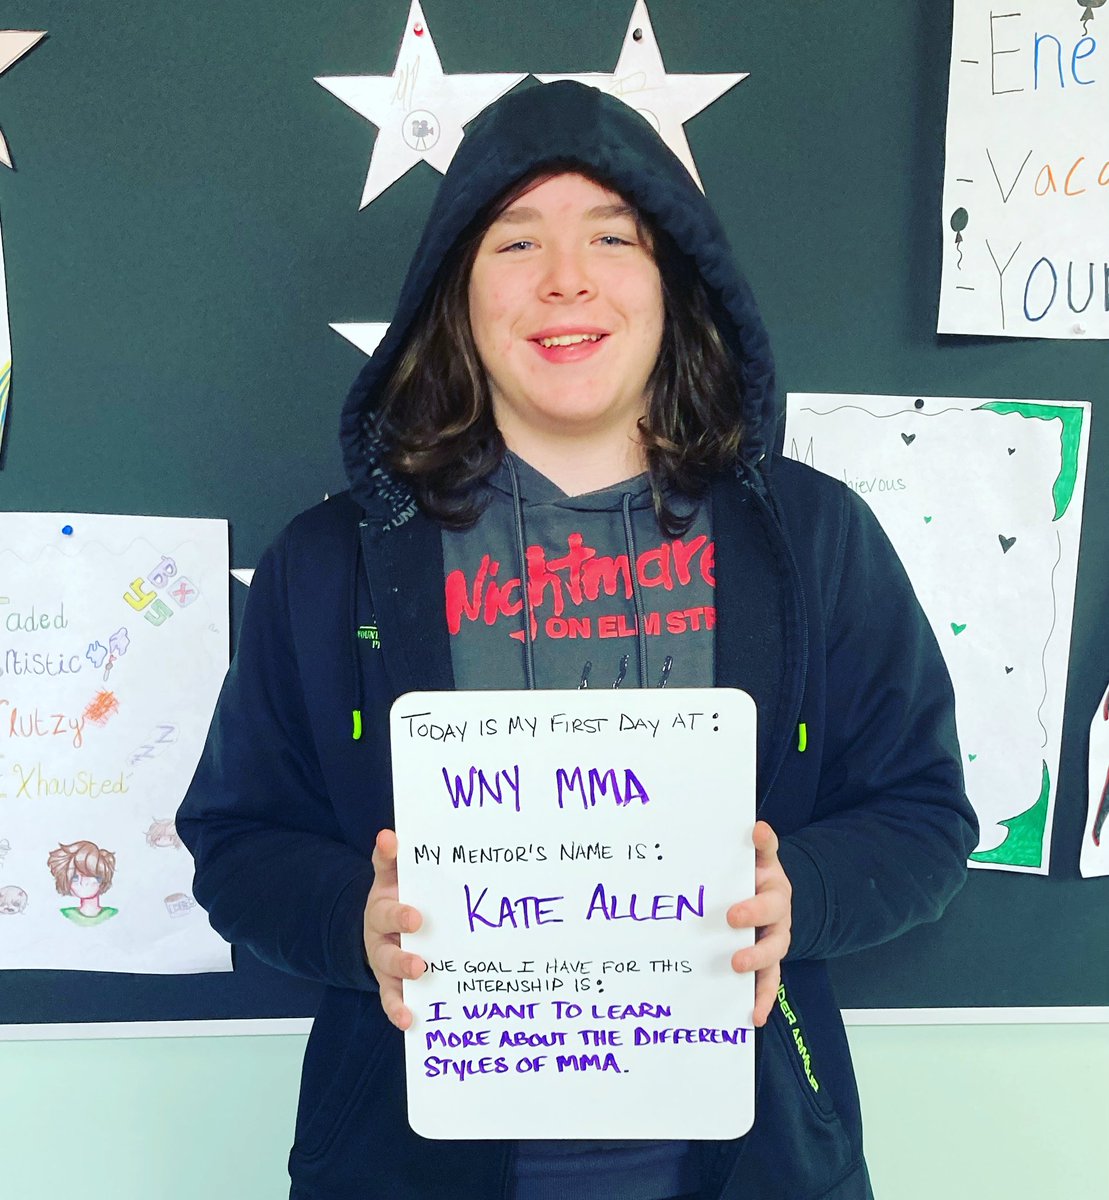 Ene
Vaca
Your
hievous
Nightmare
ON ELM STR
TODAY IS MY FIRST DAY AT:
WNY MMA
MY MENTOR'S NAME IS:
KATE ALLEN
ONE GOAL I HAVE FOR THIS
INTERNSHIP IS:
I WANT TO LEARN
MORE ABOUT THE DIFFERENT
STYLES OF MMA.
aded
rtistic
lutzy
Exhausted
zzz
NDER ARMOUR